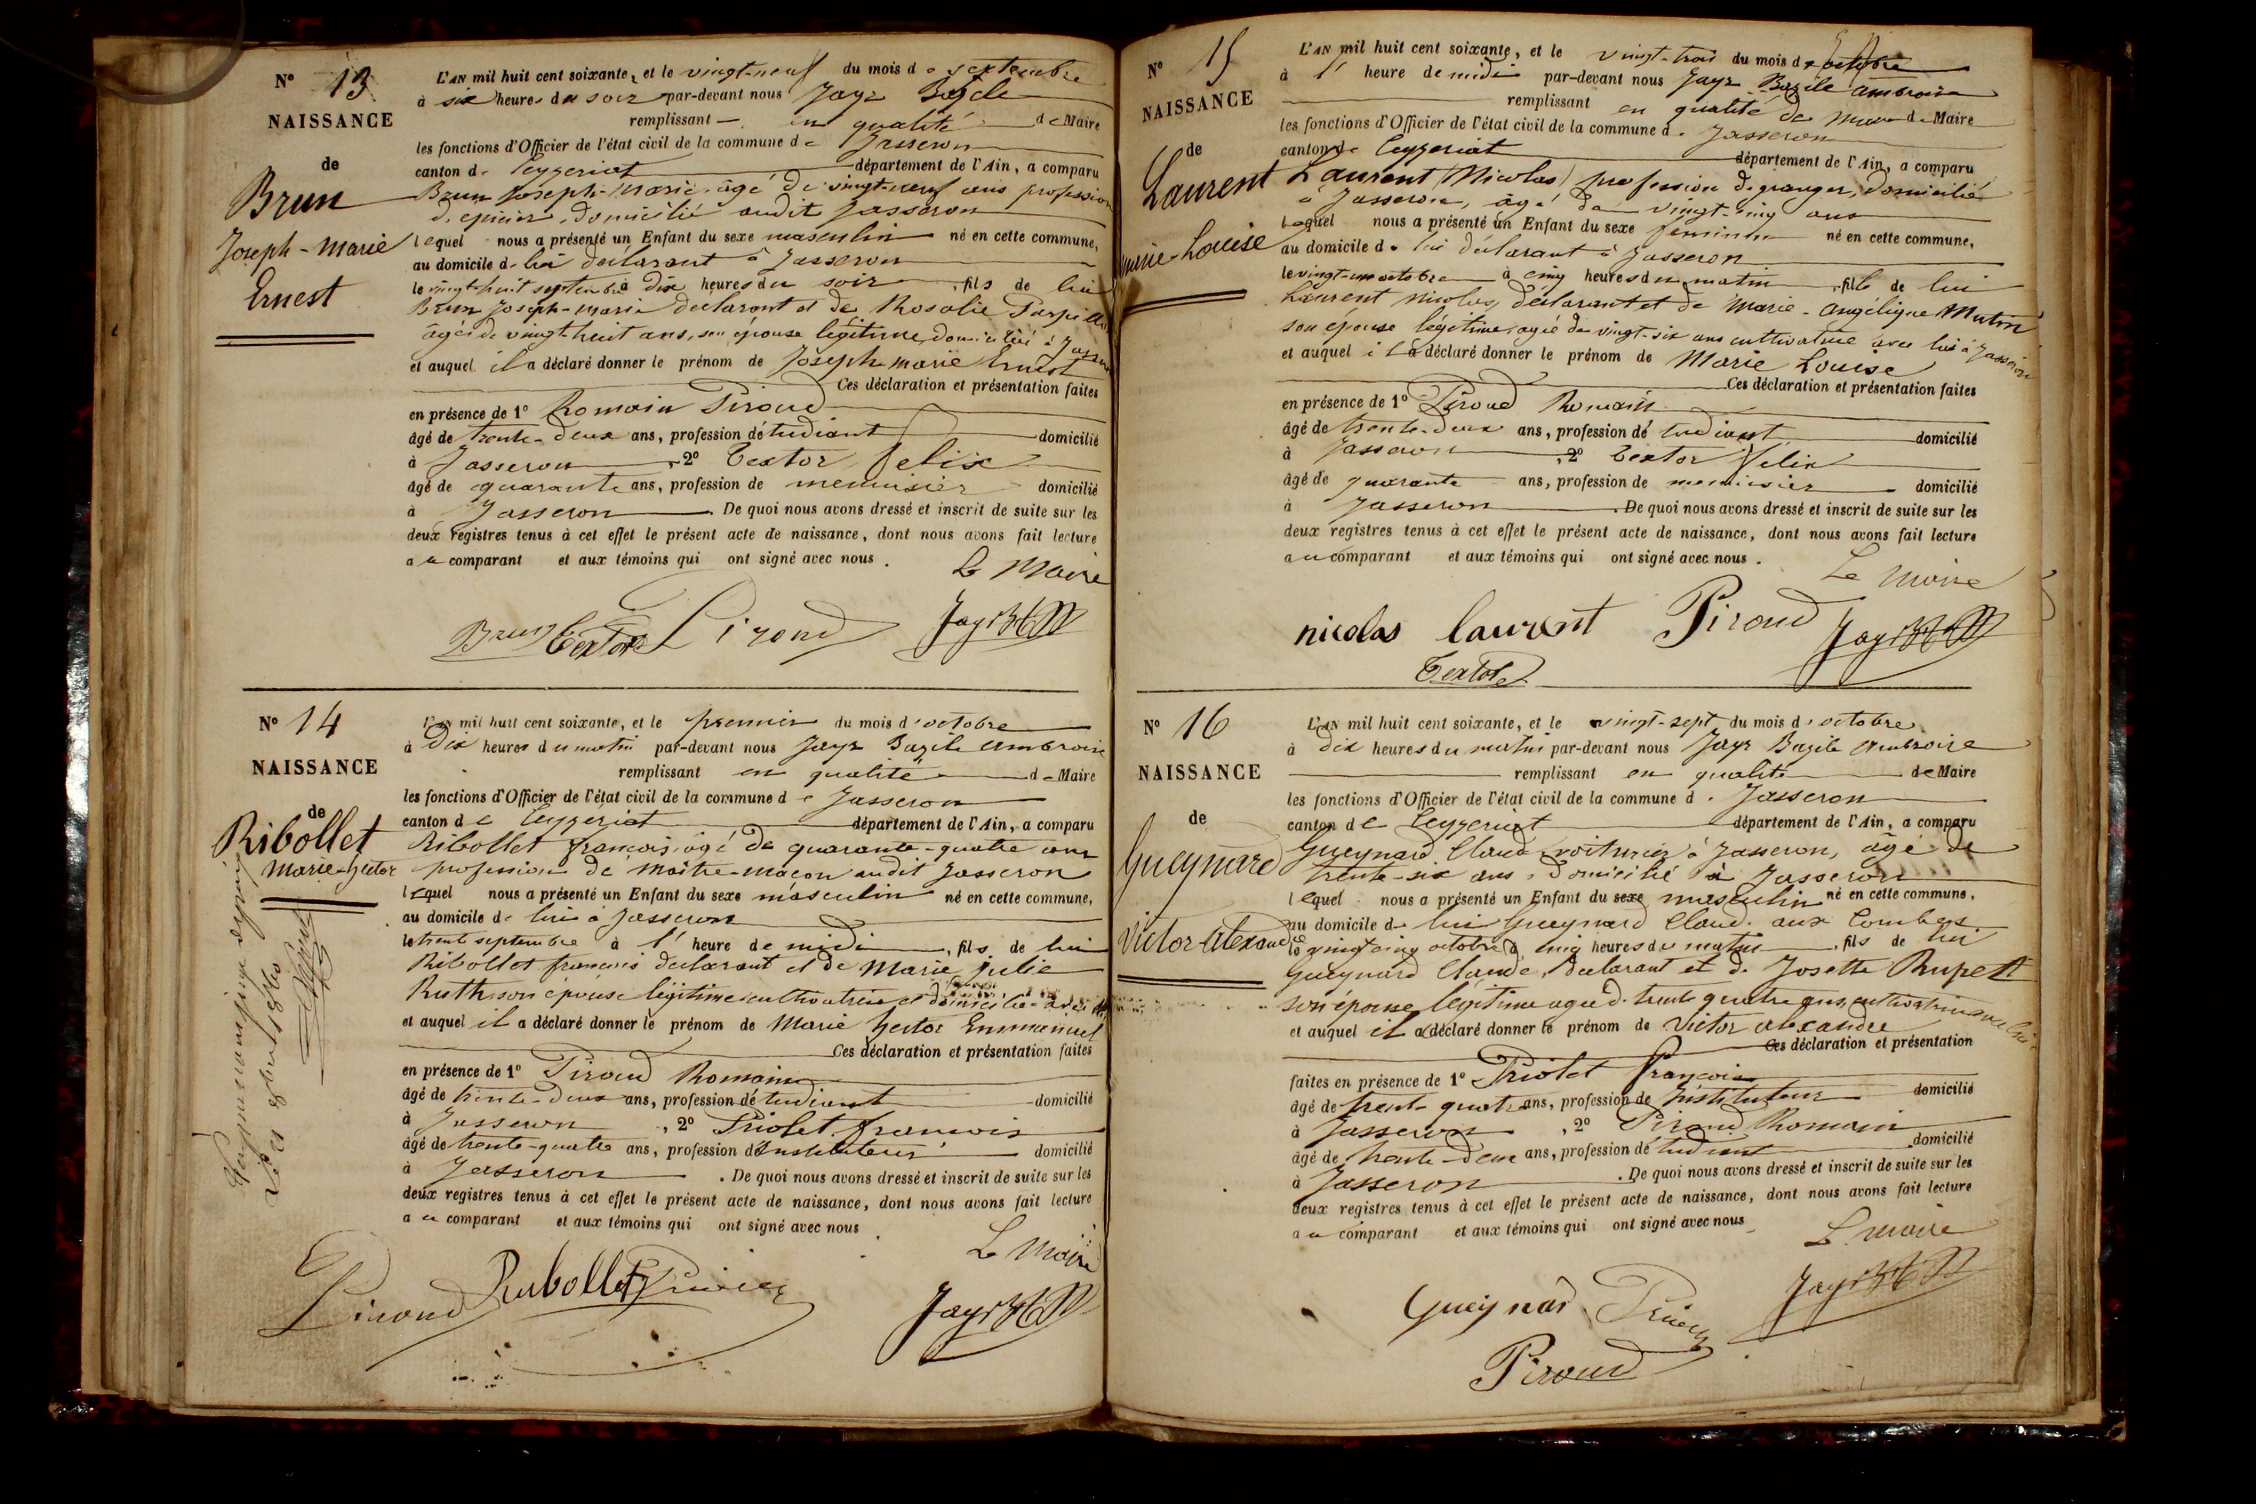 N° 13
NAISSANCE
de
Brun
Joseph-Marie
Ernest
L'AN mil huit cent soixante, et le vingt-neuf du mois de septembre
à six heures du soir par-devant nous Jayr Bazile
remplissant en qualité de Maire
les fonctions d'Officier de l'état civil de la commune de Jasseron
canton de Ceyzeriat département de l'Ain, a comparu
Brun Joseph-Marie, âgé de vingt-neuf ans profession
d'epicier, domicilié audit Jasseron
lequel nous a présenté un Enfant du sexe masculin né en cette commune,
au domicile de lui déclarant à Jasseron
le vingt-huit septembre à dix heures du soir, fils de lui
Brun Joseph-Marie déclarant et de Rosalie
âgée de vingt huit ans, son épouse légitime, domiciliée à
et auquel il a déclaré donner le prénom de Joseph marie Ernest
Ces déclaration et présentation faites
en présence de 1° Romain Piroud
âgé de trente-deux ans, profession d'étudiant domicilié
à Jasseron, 2° Textor Felix
âgé de quarante ans, profession de menuisier domicilié
à Jasseron. De quoi nous avons dressé et inscrit de suite sur les
deux registres tenus à cet effet le présent acte de naissance, dont nous avons fait lecture
au comparant et aux témoins qui ont signé avec nous.
Le Maire
Brun Textor Piroud Jayr
N° 14
NAISSANCE
de
Ribollet
Marie-Hector
L'AN mil huit cent soixante, et le premier du mois d'octobre
à dix heures du matin par-devant nous Jayr Bazile Ambroise
remplissant en qualité de Maire
les fonctions d'Officier de l'état civil de la commune de Jasseron
canton de Ceyzeriat département de l'Ain, a comparu
Ribollet françois, âgé de quarante-quatre ans
profession de maître-maçon audit Jasseron
lequel nous a présenté un Enfant du sexe masculin né en cette commune,
au domicile de lui à Jasseron
le trente septembre à l'heure de midi, fils de lui
Ribollet francois déclarant et de Marie julie
Ruth son epouse légitime cultivatrice et domiciliée
et auquel il a déclaré donner le prénom de Marie hector Emmanuel
Ces déclaration et présentation faites
en présence de 1° Piroud Romain
âgé de trente-deux ans, profession d'étudiant domicilié
à Jasseron, 2° Priolet francois
âgé de trente-quatre ans, profession d'Instituteur domicilié
à Jasseron. De quoi nous avons dressé et inscrit de suite sur les
deux registres tenus à cet effet le présent acte de naissance, dont nous avons fait lecture
au comparant et aux témoins qui ont signé avec nous
Le Maire
Piroud Ribollet Jayr
N° 15
NAISSANCE
de
Laurent
Marie-Louise
L'AN mil huit cent soixante, et le vingt-trois du mois d'octobre
à l'heure de midi par-devant nous Jayr Bazile ambroise
remplissant en qualité de Maire
les fonctions d'Officier de l'état civil de la commune de Jasseron
canton de Ceyzeriat département de l'Ain, a comparu
Laurent (Nicolas) profession de granger, domicilié
à Jasseron, âgé de vingt-cinq ans
Lequel nous a présenté un Enfant du sexe féminin né en cette commune,
au domicile de lui déclarant à Jasseron
le vingt-un octobre à cinq heures du matin, fille de lui
Laurent nicolas, déclarant et de Marie-Angélique Mutin
son épouse légitime, agée de vingt-six ans cultivatrice avec lui à Jasseron
et auquel il a déclaré donner le prénom de Marie Louise
Ces déclaration et présentation faites
en présence de 1° Piroud Romain
âgé de trente-deux ans, profession d'étudiant domicilié
à Jasseron, 2° Textor Felix
âgé de quarante ans, profession de menuisier domicilié
à Jasseron. De quoi nous avons dressé et inscrit de suite sur les
deux registres tenus à cet effet le présent acte de naissance, dont nous avons fait lecture
au comparant et aux témoins qui ont signé avec nous.
Le Maire
nicolas laurent Piroud Jayr
Textor
N° 16
NAISSANCE
de
Gueynard
Victor Alexandre
L'AN mil huit cent soixante, et le vingt-sept du mois d'octobre
à dix heures du matin par-devant nous Jayr Bazile Ambroise
remplissant en qualité de Maire
les fonctions d'Officier de l'état civil de la commune de Jasseron
canton de Ceyzeriat département de l'Ain, a comparu
Gueynard Claude voiturier à Jasseron, âgé de
trente-six ans, domicilié à Jasseron
lequel nous a présenté un Enfant du sexe masculin né en cette commune,
au domicile de lui Gueynard Claude aux Combes
le vingt cinq octobre à cinq heures du matin, fils de lui
Gueynard Claude, déclarant et de Josette
son épouse légitime agée de trente quatre ans, cultivatrice avec lui
et auquel il a déclaré donner le prénom de Victor alexandre
Ces déclaration et présentation
faites en présence de 1° Priolet françois
âgé de trente quatre ans, profession de Instituteur domicilié
à Jasseron, 2° Piroud Romain
âgé de trente-deux ans, profession d'étudiant domicilié
à Jasseron. De quoi nous avons dressé et inscrit de suite sur les
deux registres tenus à cet effet le présent acte de naissance, dont nous avons fait lecture
au comparant et aux témoins qui ont signé avec nous
Le Maire
Gueynard Jayr
Piroud